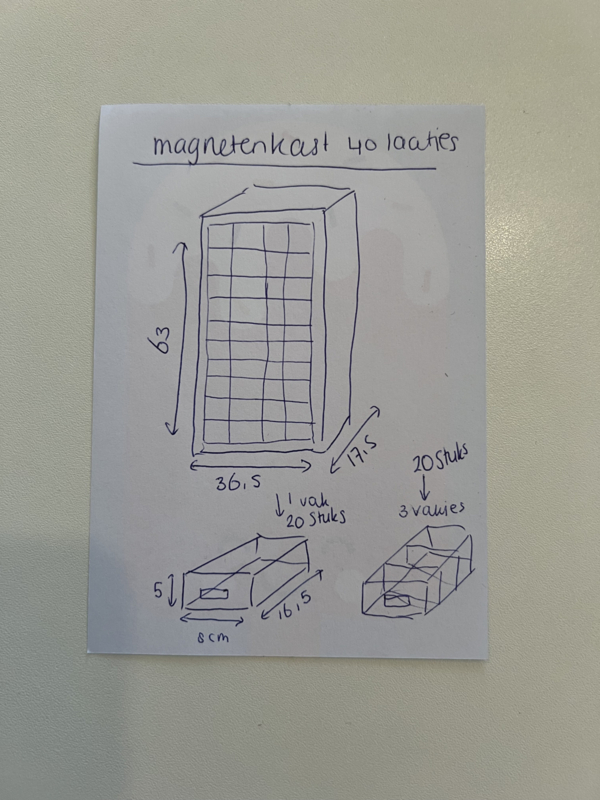 magnetenkast 40 laatjes
63
36,5
17,5
1 vak
20 stuks
20 stuks
3 vakjes
5
8cm
16,5